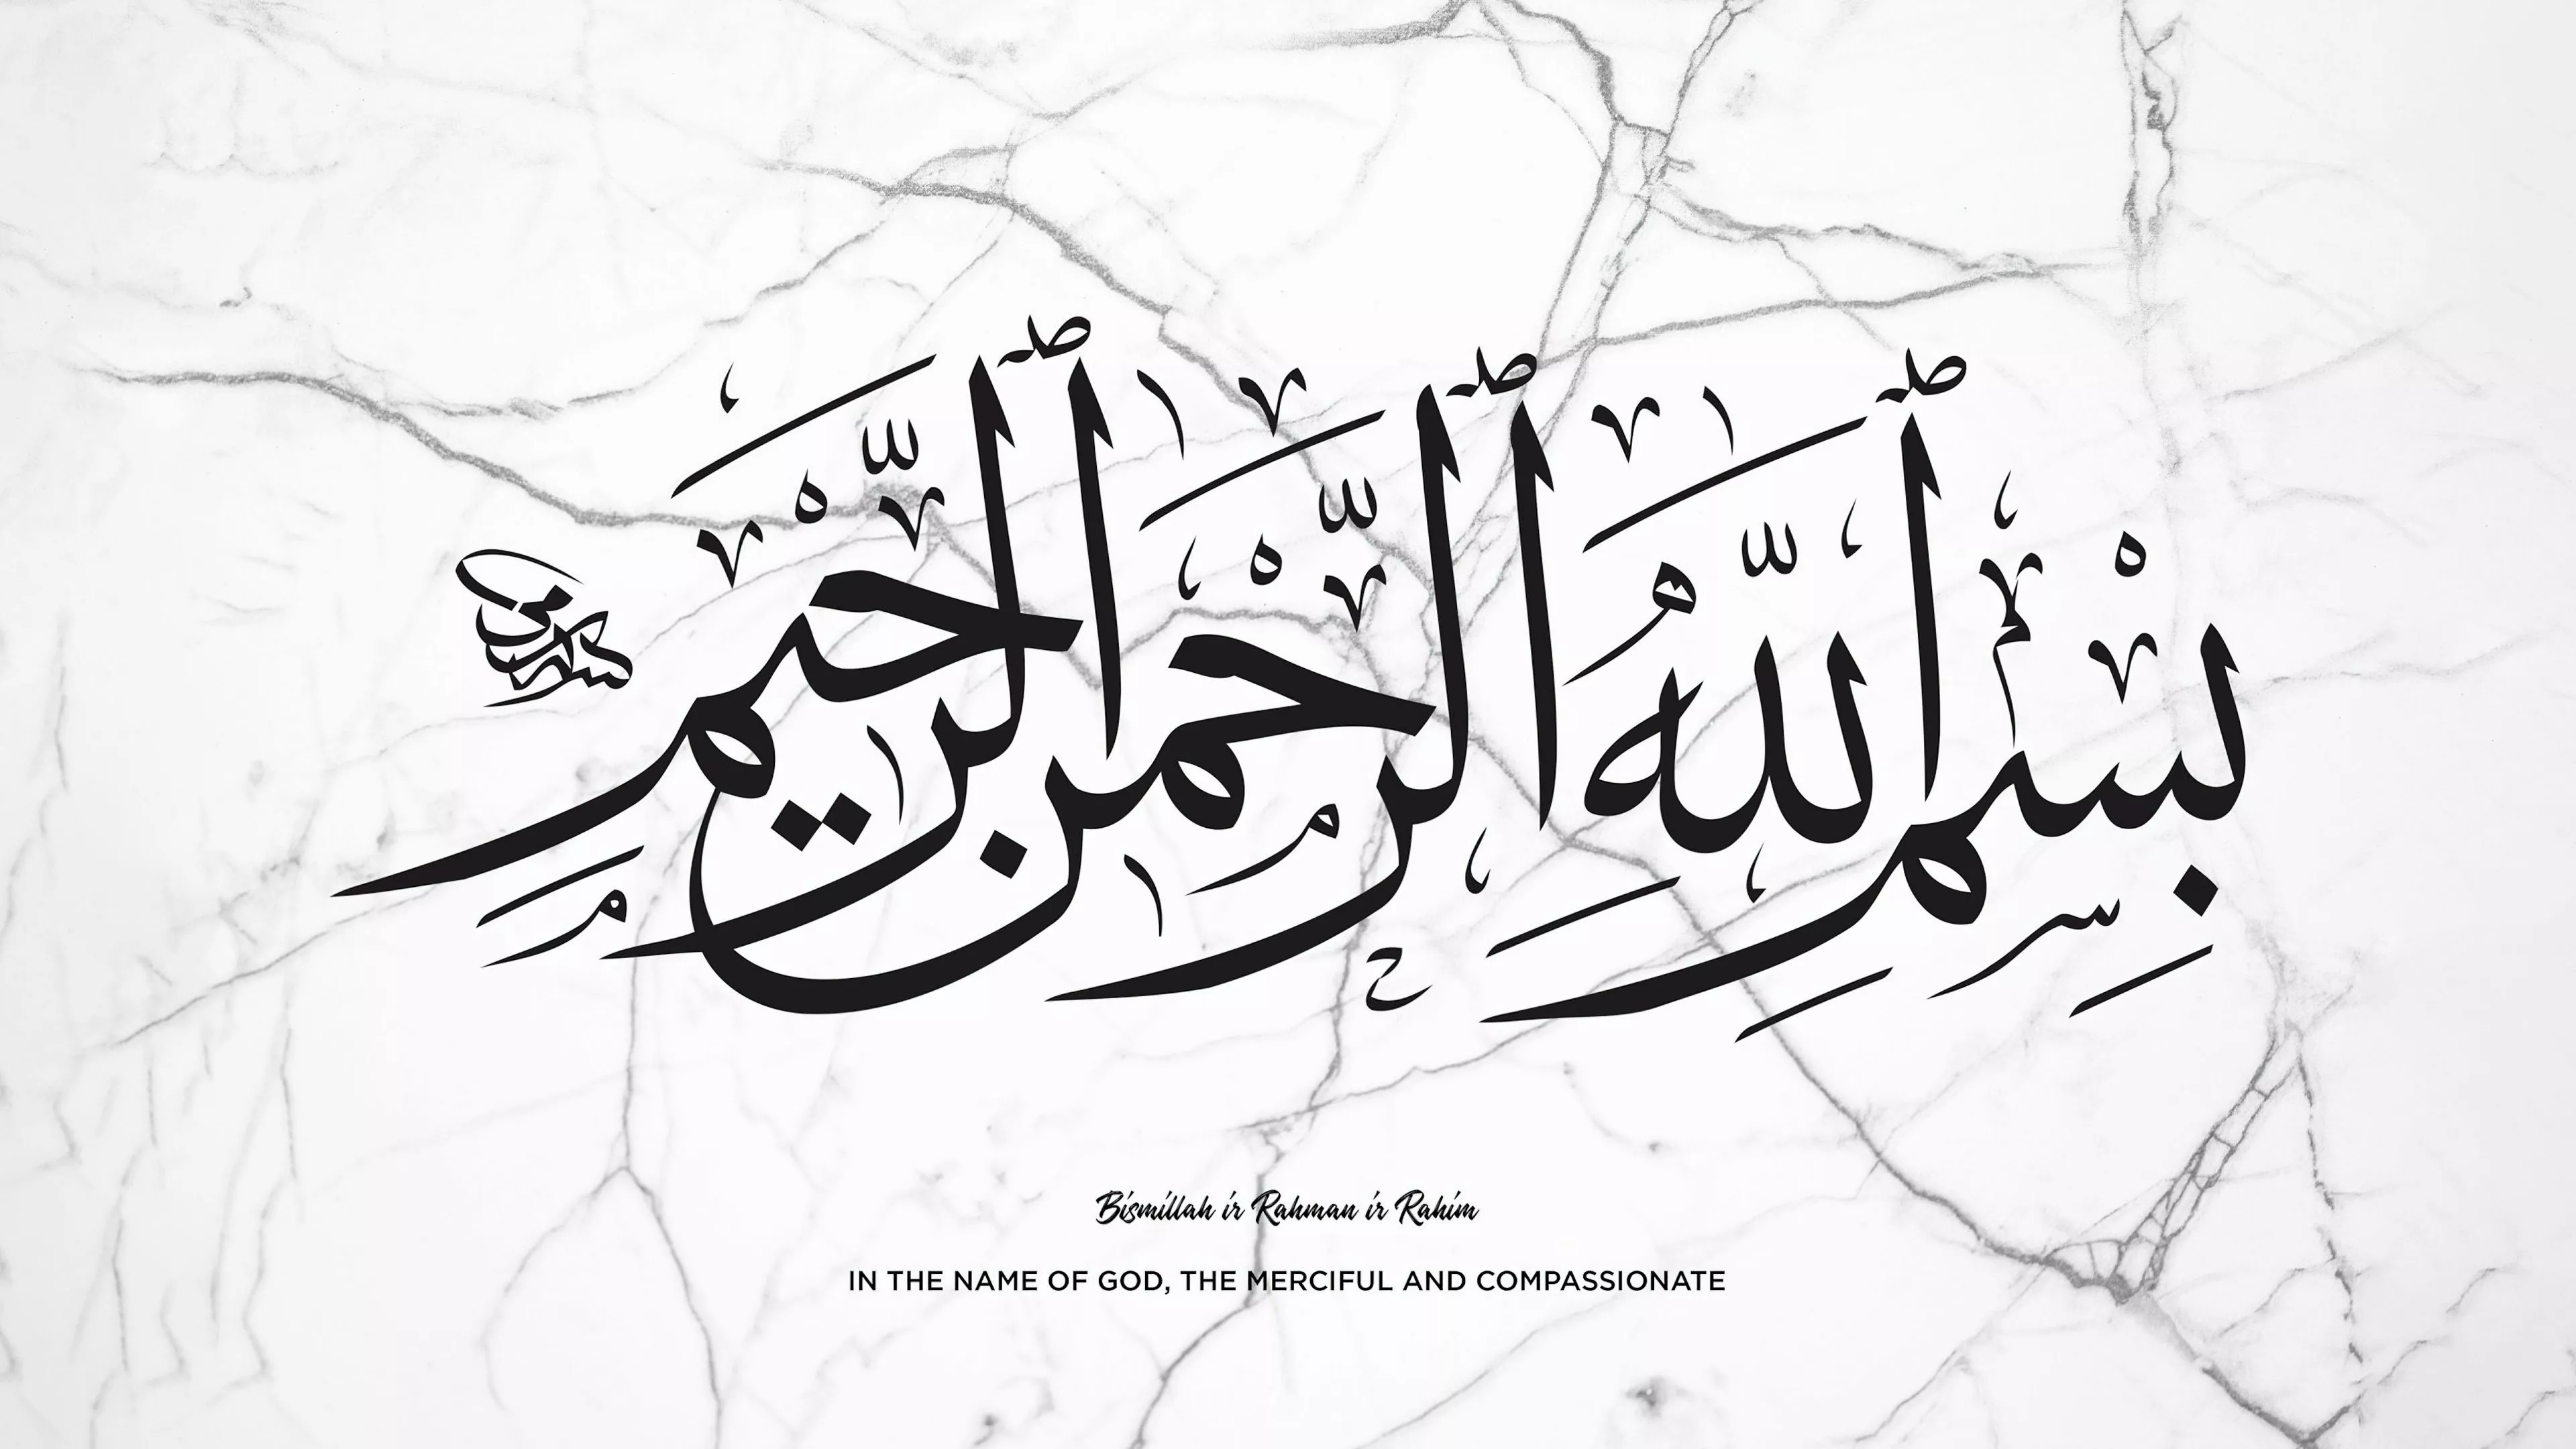 بِسْمِ ٱللَّهِ ٱلرَّحْمَٰنِ ٱلرَّحِيمِ
Bismillah ir Rahman ir Rahim
IN THE NAME OF GOD, THE MERCIFUL AND COMPASSIONATE